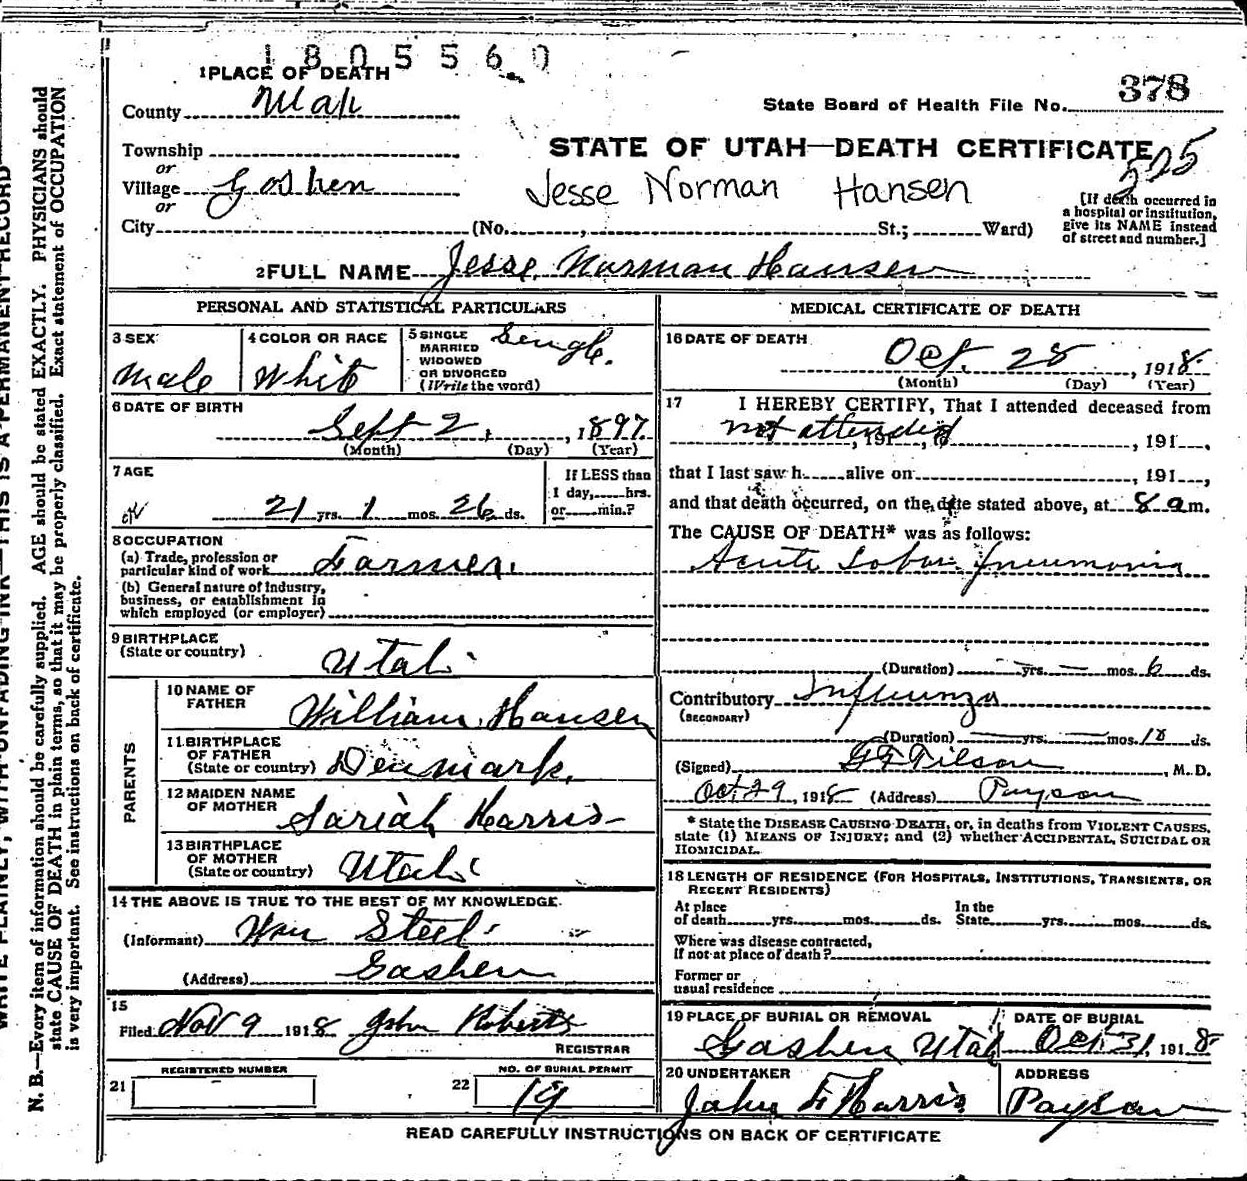 1805560
1 PLACE OF DEATH
County Utah
State Board of Health File No. 378
Township
or
Village Goshen
or
City (No. , St.; Ward)
STATE OF UTAH—DEATH CERTIFICATE
525
Jesse Norman Hansen
[If death occurred in
a hospital or institution,
give its NAME instead
of street and number.]
2 FULL NAME Jesse Norman Hansen
PERSONAL AND STATISTICAL PARTICULARS
3 SEX
Male
4 COLOR OR RACE
White
5 SINGLE
MARRIED
WIDOWED
OR DIVORCED
(Write the word)
Single.
6 DATE OF BIRTH
Sept 2, , 1897
(Month) (Day) (Year)
7 AGE
21 yrs. 1 mos. 26 ds.
If LESS than
1 day, hrs.
or min.?
8 OCCUPATION
(a) Trade, profession or
particular kind of work Farmer.
(b) General nature of industry,
business, or establishment in
which employed (or employer)
9 BIRTHPLACE
(State or country)
Utah
PARENTS
10 NAME OF
FATHER
William Hansen
11 BIRTHPLACE
OF FATHER
(State or country) Denmark.
12 MAIDEN NAME
OF MOTHER
Sariah Harris
13 BIRTHPLACE
OF MOTHER
(State or country) Utah
14 THE ABOVE IS TRUE TO THE BEST OF MY KNOWLEDGE.
(Informant) Wm Steel
(Address) Goshen
15
Filed Nov 9 1918 John Roberts
REGISTRAR
21
REGISTERED NUMBER
22
NO. OF BURIAL PERMIT
19
MEDICAL CERTIFICATE OF DEATH
16 DATE OF DEATH
Oct. 28 , 1918
(Month) (Day) (Year)
17 I HEREBY CERTIFY, That I attended deceased from
not attended , 191 , 191 ,
that I last saw h alive on , 191 ,
and that death occurred, on the date stated above, at 8 a m.
The CAUSE OF DEATH* was as follows:
Acute Lobar Pneumonia
(Duration) yrs. mos. 6 ds.
Contributory Influenza
(SECONDARY)
(Duration) yrs. mos. 18 ds.
(Signed) G F Tilson , M. D.
Oct 29, 1918 (Address) Payson
* State the DISEASE CAUSING DEATH, or, in deaths from VIOLENT CAUSES,
state (1) MEANS OF INJURY; and (2) whether ACCIDENTAL, SUICIDAL OR
HOMICIDAL.
18 LENGTH OF RESIDENCE (FOR HOSPITALS, INSTITUTIONS, TRANSIENTS, OR
RECENT RESIDENTS)
At place
of death yrs. mos. ds.
In the
State yrs. mos. ds.
Where was disease contracted,
If not at place of death?
Former or
usual residence
19 PLACE OF BURIAL OR REMOVAL
Goshen Utah
DATE OF BURIAL
Oct 31, 1918
20 UNDERTAKER
John F Harris
ADDRESS
Payson
READ CAREFULLY INSTRUCTIONS ON BACK OF CERTIFICATE
WRITE PLAINLY, WITH UNFADING INK—THIS IS A PERMANENT RECORD
N. B.—Every item of information should be carefully supplied. AGE should be stated EXACTLY. PHYSICIANS should
state CAUSE OF DEATH in plain terms, so that it may be properly classified. Exact statement of OCCUPATION
is very important. See instructions on back of certificate.